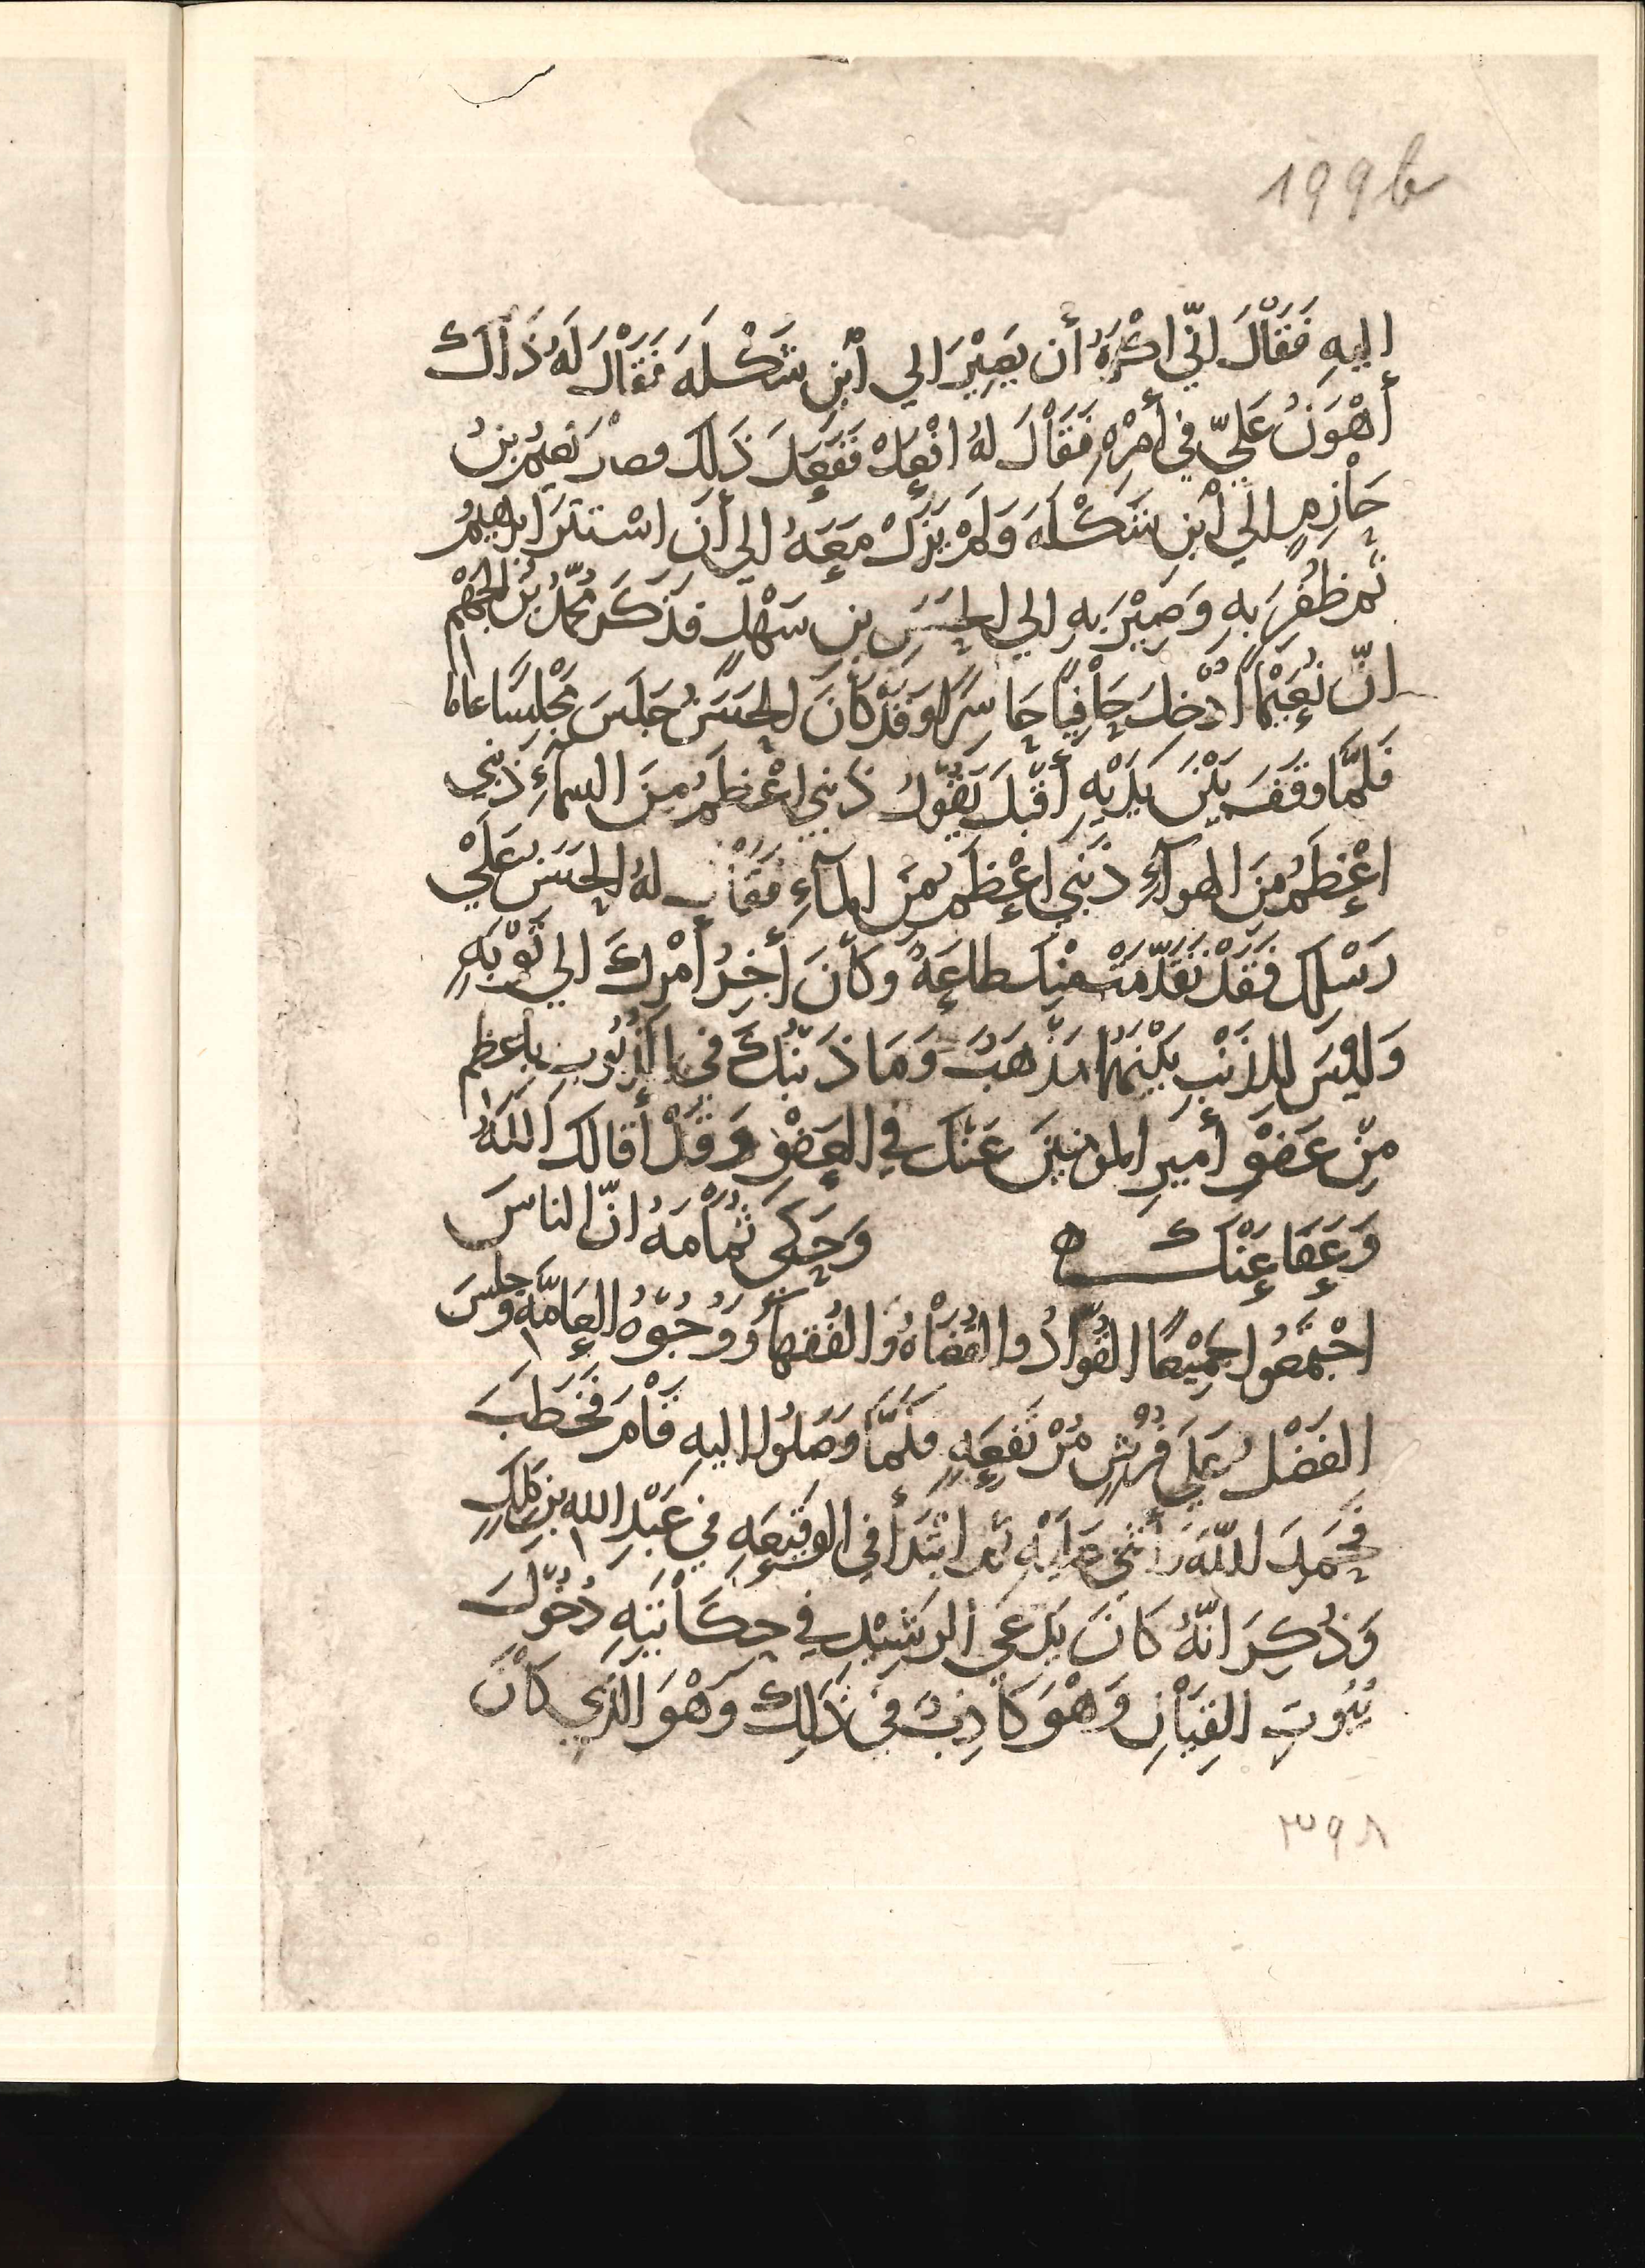 199b
إليهِ فَقَالَ انّي اكْرَهُ أن يَصِيْرَ الي أبْنِ شَكْلهَ فَقَالَ لَهُ ذَالَكَ
أهْوَنُ عَلَيّ في أمْرِهِ فَقَالَ لهُ افْعَلْ فَفَعَلَ ذَلِك وصارَ نعيمُ بنُ
حَازِمٍ الَي أبْنِ شَكْلَهَ وَلَمْ يَزَلْ مَعَهُ الي أنَ اسْتتَرَ ابرهيمُ
ثُمّ ظُفِرَ بهِ وَصِيْرَ بهِ الي الحَسَنِ بن سَهْلٍ فذَكَرَ مُحمّدُ بْنُ الجَهْم
انّ نُعَيْمًا أُدْخِلَ حَافِيًا حَاسِرًا وَقَدْ كَانَ الحَسَنُ جَلَسَ مَجْلِسًا عاما
فَلمَّا وقفَ بَيْنَ يَدَيْهِ أقْبَلَ يَقُولُ ذنبي اعْظمُ مِنَ السماءِ ذَنْبي
اعْظَمُ مِنَ الهوآءِ ذَنْبي اعْظَمُ مِنَ المآءِ فَقَالَ لهُ الحَسَنُ عَلَيْ
رَسْلِكَ فَقَدْ تَقَدّمَتْ مِنْكَ طاعَهٌ وكَانَ أخِرُ أمْرِكَ الي تَوْبَهٍ
وَلَيْسَ للذَنْبِ بَيْنَهُمَا مَذْهَبٌ وَمَا ذَنْبُكَ في الذُنُوبِ باعظمَ
مِنْ عَفْوِ أميرِ المومنينَ عَنْكَ في العَفْوِ وَقَدْ أقالَكَ اللَّهُ
وَعَفَا عَنْكَ ه وَحَكَى ثُمَامَهُ انّ الناسَ
اجْتمَعُوا جَمِيْعًا القُوّادُ والقُضَاهُ والفُقهاءُ وَوُجُوْهُ العَامّهِ وجَلَسَ
الفَضْلُ عَلَي فُرُشٍ مُرْتَفِعَهٍ فلَمّا وَصَلُوا اليهِ قَامَ فَخَطَبَ
فَحَمِدَ اللّهَ وَأثني عَلَيْهِ ثم ابتَدَأ في الوَقِيْعَهِ في عَبْدِ الله بنِ مَالِكٍ
وَذُكِرَ انّهُ كَانَ يَدّعي الرشِيْدِ في حِكَايَتِهِ دُخُولَ
بُيُوتِ القِيَانِ وَهْوَ كَاذِبٌ في ذَلِكَ وَهْوَ الذِي كَانَ
٣٩٨